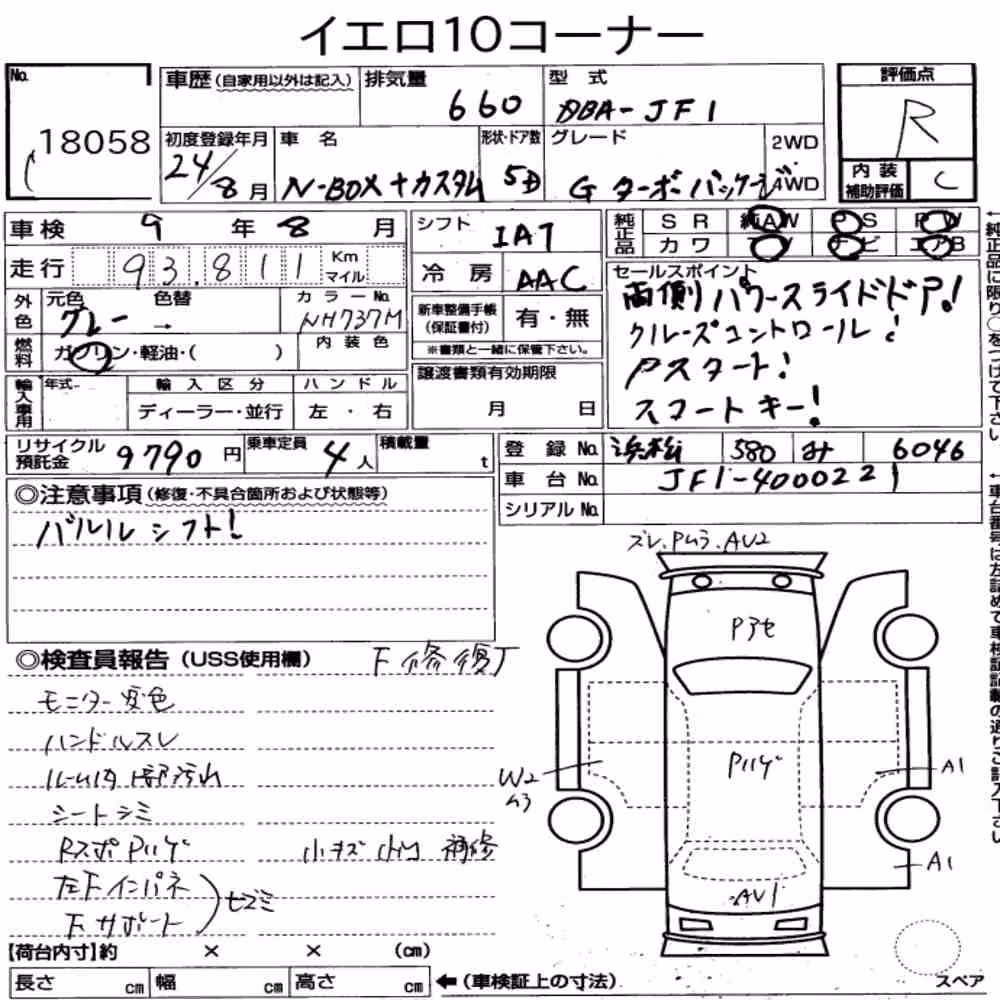 イエロ10コーナー
No. 18058
車歴 (自家用以外は記入)
排気量 660
型式 DBA-JF1
評価点 R
初度登録年月 24/8月
車名 N-BOX+カスタム
形状・ドア数 5D
グレード G ターボパッケージ
2WD
4WD
内装補助評価 C
車検 9年 8月
シフト IAT
純正品 SR 純AW PS PW
カワ TV ナビ エアB
走行 93,811 Km マイル
冷房 AAC
外色 元色 グレー → 色替
カラーNo. NH737M
燃料 ガソリン・軽油・( )
内装色
新車整備手帳(保証書付) 有・無
※書類と一緒に保管下さい。
セールスポイント
両側パワースライドドア!
クルーズコントロール!
Pスタート!
スマートキー!
輸入車用 年式 輸入区分 ハンドル
ディーラー・並行 左・右
譲渡書類有効期限
月 日
リサイクル預託金 9790円
乗車定員 4人
積載量 t
登録No. 浜松 580 み 6046
車台No. JF1-4000221
シリアルNo.
◎注意事項 (修復・不具合箇所および状態等)
パドルシフト!
◎検査員報告 (USS使用欄) F修復歴
モニター変色
ハンドルスレ
ルーム内部汚れ
シートシミ
RスポPハゲ 小キズ 小凹 補修
左Fインパネ
Fサポート
ズレ.Pムラ.AU2
Pアセ
Pハゲ
W2
ムラ
A1
A1
AU1
【荷台内寸】約 × × (cm)
長さ cm 幅 cm 高さ cm
←(車検証上の寸法)
スペア
←純正品に限り○をつけて下さい。
←車台番号は左詰めで車検証記載の通りご記入下さい